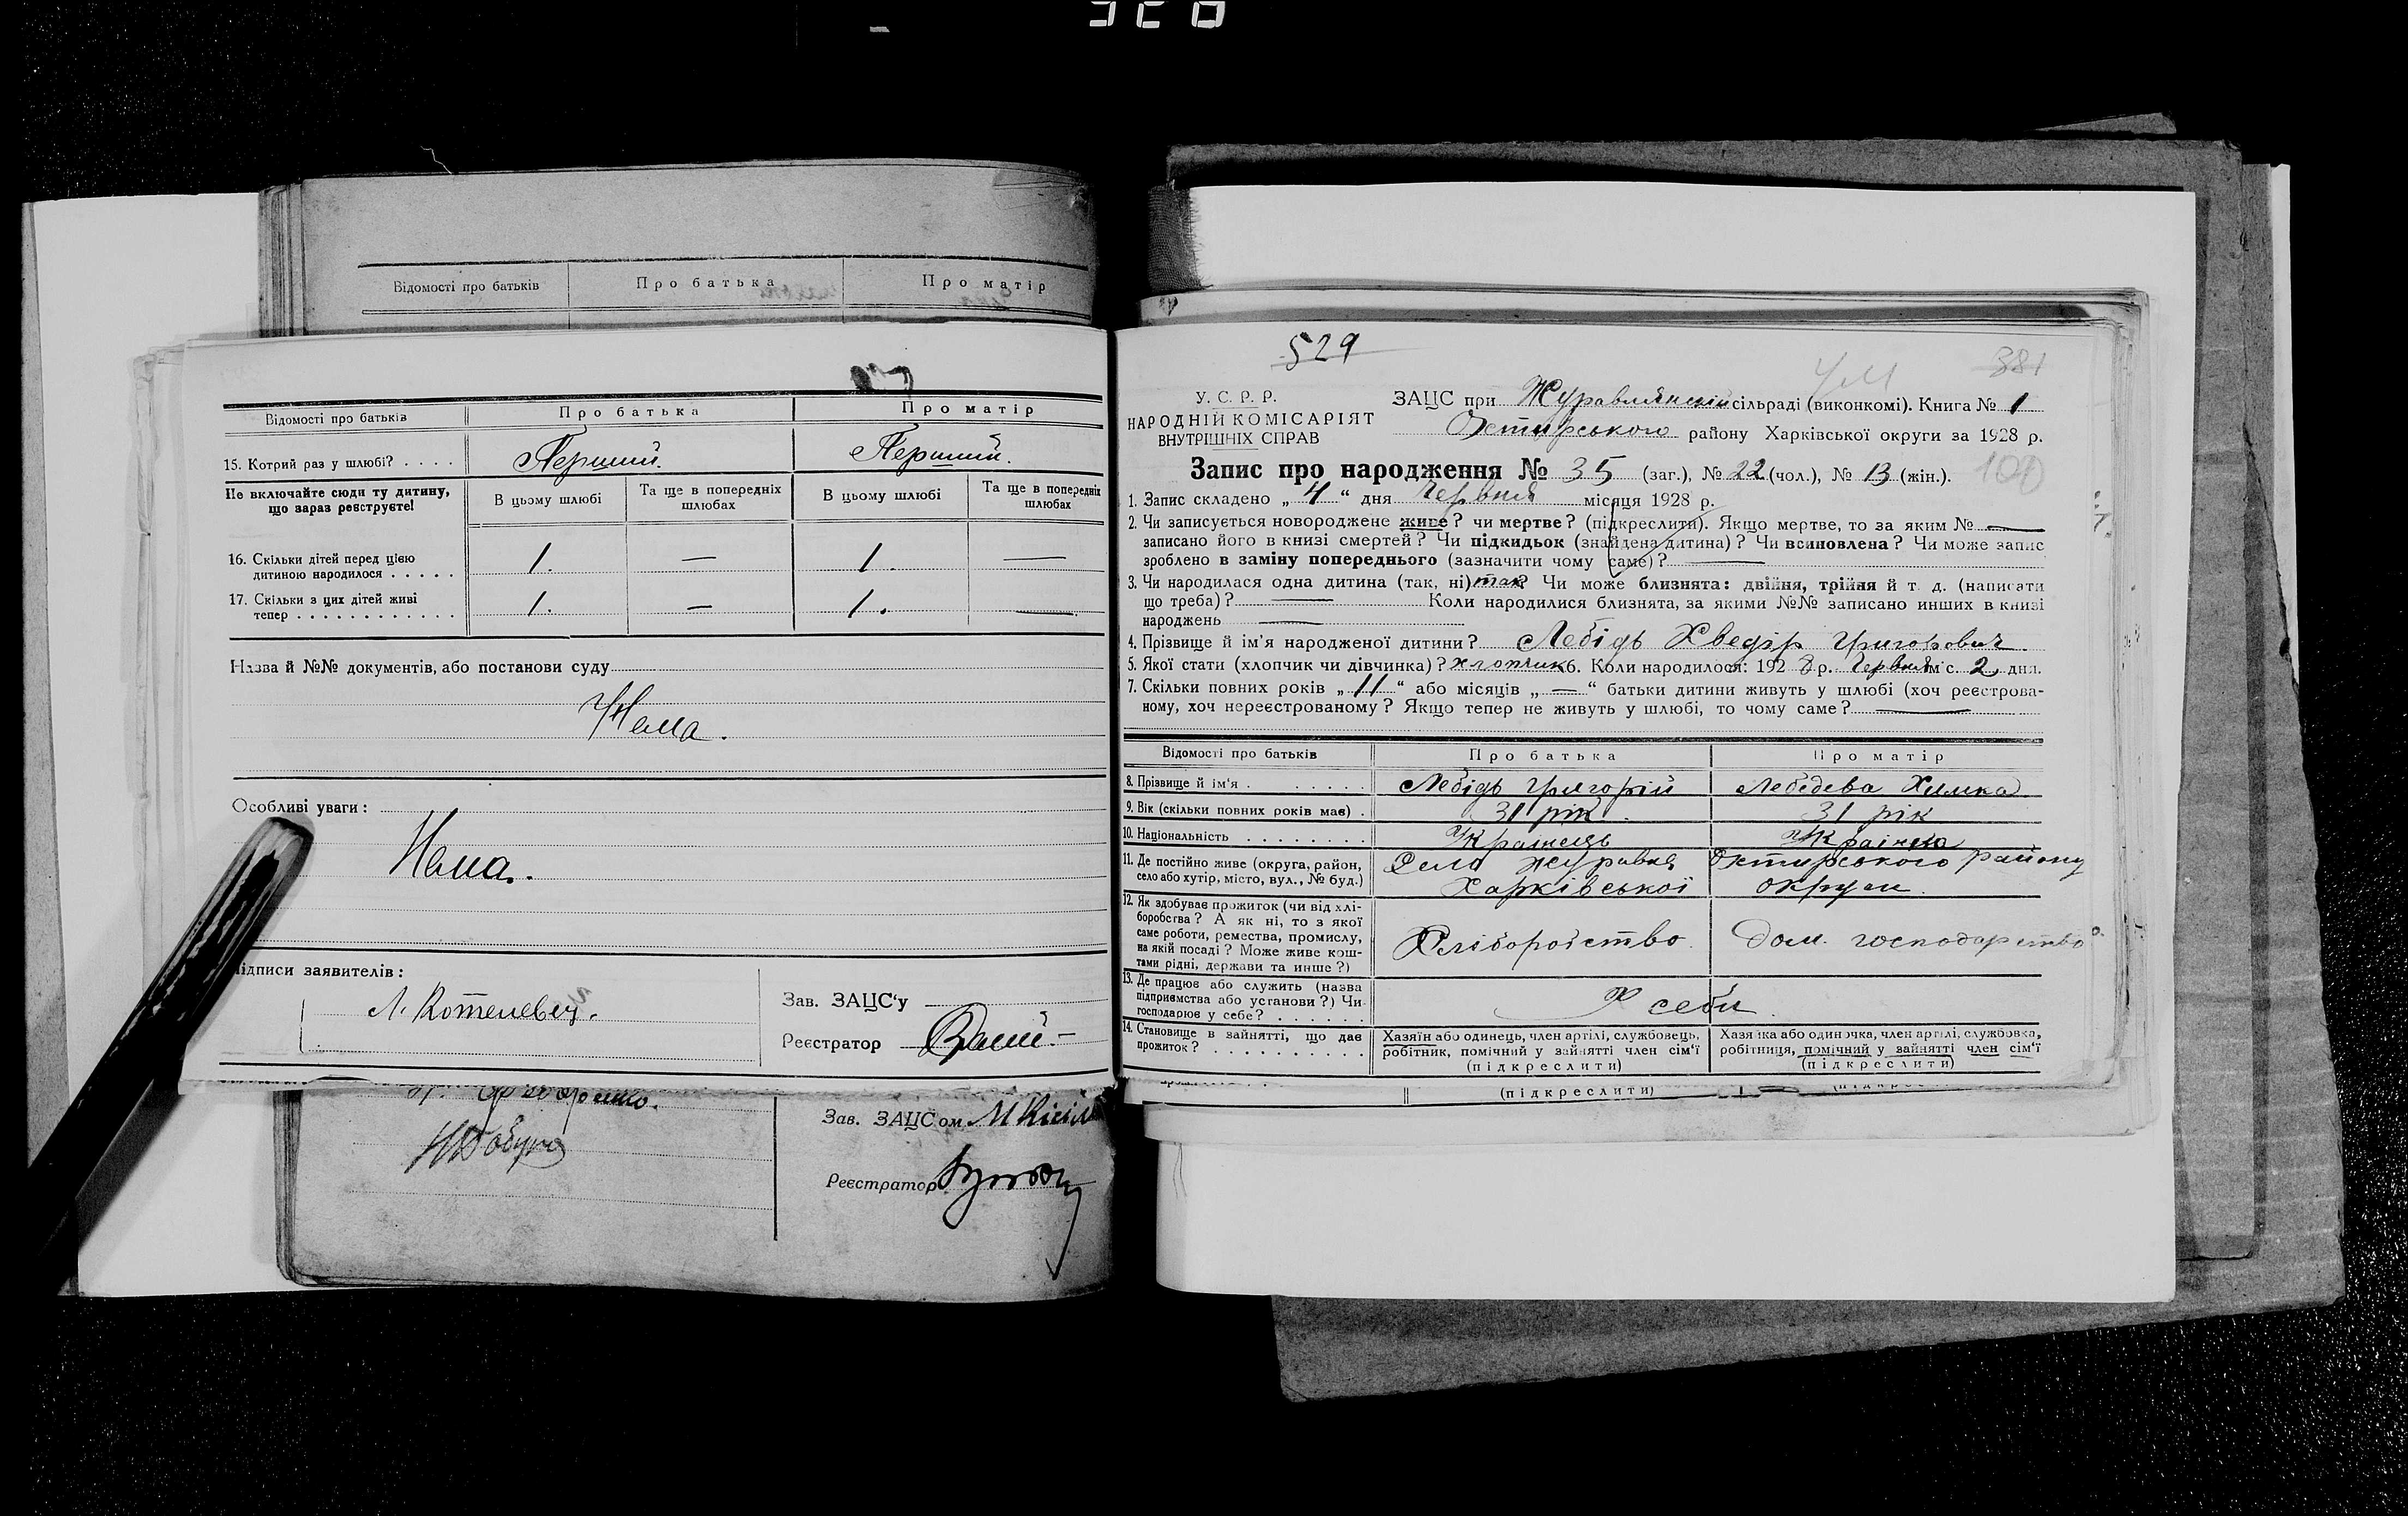 Відомості про батьків | Про батька | Про матір
Відомості про батьків | Про батька | Про матір
15. Котрий раз у шлюбі? . . . . Перший. | Перший.
Не включайте сюди ту дитину, що зараз реєструєте! | В цьому шлюбі | Та ще в попередніх шлюбах | В цьому шлюбі | Та ще в попередніх шлюбах
16. Скільки дітей перед цією
дитиною народилося . . . . . 1. | — | 1. | —
17. Скільки з цих дітей живі
тепер . . . . . . . . . . . . 1. | — | 1. | —
Назва й №№ документів, або постанови суду
Нема.
Особливі уваги:
Нема.
Підписи заявителів:
Л. Котелевец.
Зав. ЗАЦС'у
Реєстратор
Зав. ЗАЦСом
Реєстратор
529
381
У. С. Р. Р.
НАРОДНІЙ КОМІСАРІЯТ
ВНУТРІШНІХ СПРАВ
ЗАЦС при Журавлянській сільраді (виконкомі). Книга № 1
району Харківської округи за 1928 р.
Запис про народження № 35 (заг.), № 22 (чол.), № 13 (жін.).
1. Запис складено „ 4 “ дня Червня місяця 1928 р.
2. Чи записується новороджене живе? чи мертве? (підкреслити). Якщо мертве, то за яким № —
записано його в книзі смертей? Чи підкидьок (знайдена дитина)? Чи всиновлена? Чи може запис
зроблено в заміну попереднього (зазначити чому саме)? —
3. Чи народилася одна дитина (так, ні) так? Чи може близнята: двійня, трійня й т. д. (написати
що треба)? — Коли народилися близнята, за якими №№ записано инших в книзі
народжень —
4. Прізвище й ім'я народженої дитини? Лебідь Хведір Григорович.
5. Якої стати (хлопчик чи дівчинка)? хлопчик 6. Коли народилося: 1928 р. Червня міс. 2 дня.
7. Скільки повних років „ 11 “ або місяців „ — “ батьки дитини живуть у шлюбі (хоч реєстрова-
ному, хоч нереєстрованому? Якщо тепер не живуть у шлюбі, то чому саме? —
Відомості про батьків | Про батька | Про матір
8. Прізвище й ім'я . . . . . . Лебідь Григорій | Лебедева Химка
9. Вік (скільки повних років має) . 31 рік. | 31 рік
10. Національність . . . . . . . . Українець | Українка
11. Де постійно живе (округа, район, Село Журавна Охтирського району
село або хутір, місто, вул., № буд.) Харківської округи.
12. Як здобуває прожиток (чи від хлі-
боробства? А як ні, то з якої
саме роботи, ремества, промислу,
на якій посаді? Може живе кош-
тами рідні, держави та инше?) Хліборобство. | Дом. господарство
13. Де працює або служить (назва
підприємства або установи?) Чи
господарює у себе? . . . . . . У себи.
14. Становище в зайнятті, що дає
прожиток? . . . . . . . . . .
Хазяїн або одинець, член артілі, службовець,
робітник, помічний у зайнятті член сім'ї
(підкреслити)
Хазяйка або одиночка, член артілі, службовка,
робітниця, помічний у зайнятті член сім'ї
(підкреслити)
(підкреслити)